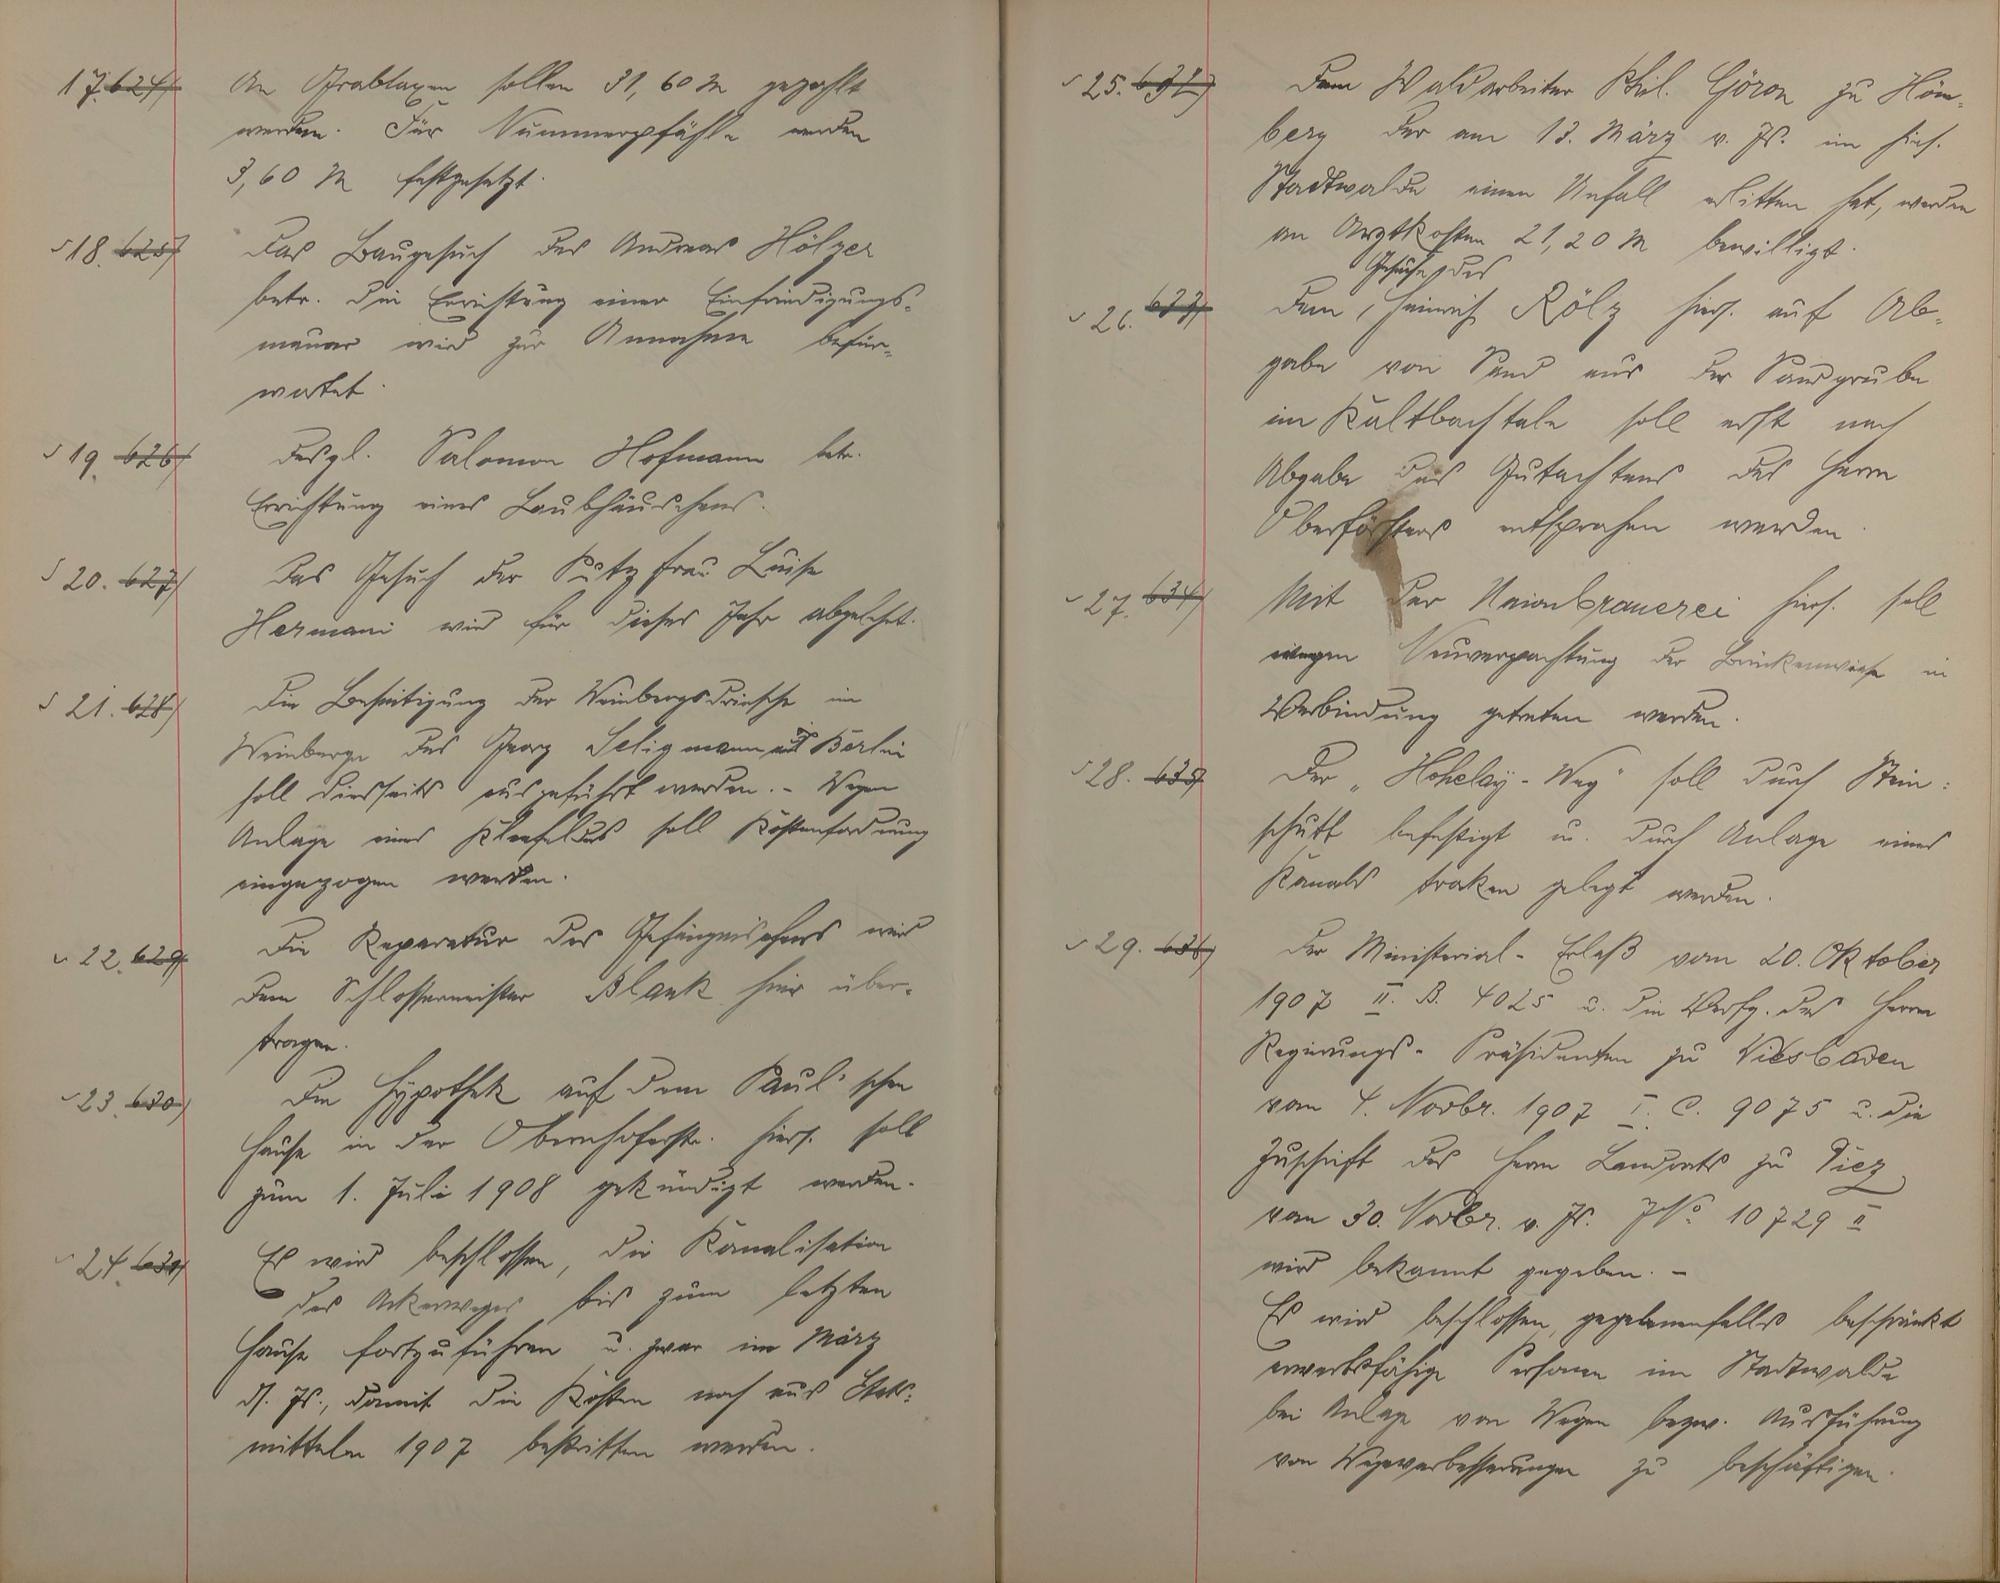 17. 624)
An Grabtaxen sollen 31,60 M gezahlt
werden. Für Nummerpfähle werden
3,60 M festgesetzt.
18. 625)
Das Baugesuch des Andreas Hölzer
betr. die Errichtung einer Einfriedigungs-
mauer wird zur Annahme befür-
wortet.
19. 626)
Desgl. Salomon Hofmann betr.
Errichtung eines Laubhäuschens.
20. 627)
Das Gesuch der Putzfrau Luise
Hermani wird für dieses Jahr abgelehnt.
21. 628)
Die Beseitigung der Weinbergsdriesche im
Weinberge des Georg Seligmann aus Berlin
soll diesseits ausgeführt werden. - Wegen
Anlage eines Kleefeldes soll Kostenforderung
eingezogen werden.
22. 629)
Die Reparatur des Gefängnisofens wird
dem Schlossermeister Blank hier über-
tragen.
23. 630)
Die Hypothek auf dem Paul'schen
Hause in der Obernhoferstr. hiers. soll
zum 1. Juli 1908 gekündigt werden.
24. 631)
Es wird beschlossen, die Kanalisation
des Ackerweges bis zum letzten
Hause fortzuführen u. zwar im März
ds. Js., damit die Kosten noch aus Etats-
mitteln 1907 bestritten werden.
25. 632)
Dem Waldarbeiter Phil. Göron zu Höm-
berg der am 13. März v. Js. im hies.
Stadtwalde einen Unfall erlitten hat, werden
an Arztkosten 21,20 M bewilligt.
26. 633)
Gesuche des
Dem Heinrich Rölz hiers. auf Ab-
gabe von Sand aus der Sandgrube
im Kaltbachtale soll erst nach
Abgabe des Gutachtens des Herrn
Oberförsters entsprochen werden.
27. 634)
Mit der Unionbrauerei hiers. soll
wegen Neuverpachtung der Brückenwiese in
Verbindung getreten werden.
28. 635)
Der „Hohelay-Weg" soll durch Stein-
schutt befestigt u. durch Anlage eines
Kanals trocken gelegt werden.
29. 636)
Der Ministerial-Erlaß vom 20. Oktober
1907 II. B. 4025 u. die Verfg. des Herrn
Regierungs-Präsidenten zu Wiesbaden
vom 4. Novbr. 1907 I. C. 9075 u. die
Zuschrift des Herrn Landrats zu Diez
vom 30. Novbr. v. Js. JNo. 10729 II
wird bekannt gegeben. -
Es wird beschlossen, gegebenenfalls beschränkt
erwerbsfähige Personen im Stadtwalde
bei Anlage von Wegen bezw. Ausführung
von Wegeverbesserungen zu beschäftigen.